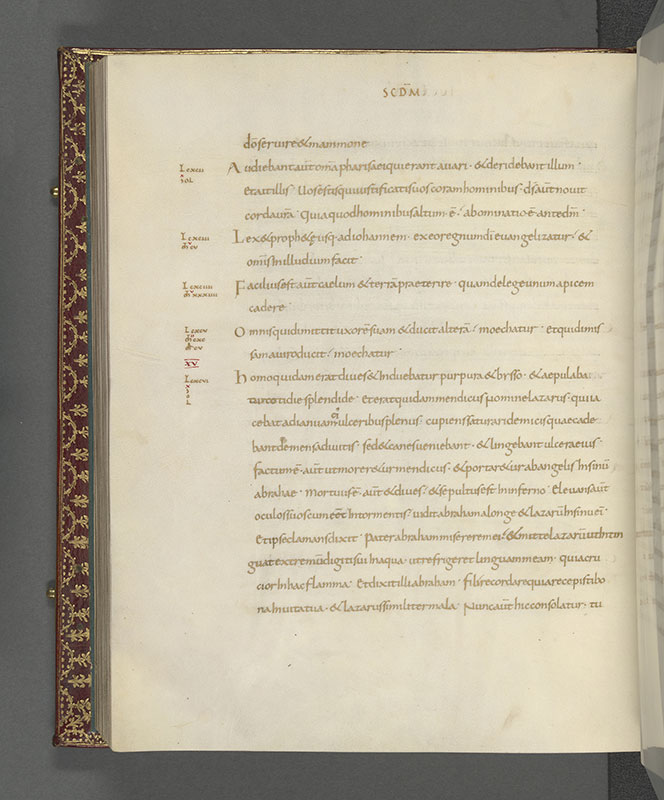 SCDM̅
dō seruire & mammone
Audiebant aut̄ om̄a pharisaei qui erant auari · & deridebant illum
et ait illis · Uos estis qui iustificatis uos coram hominibus · d̄s aut̄ nouit
corda ur̄a · Quia quod hominibus altum ē · abominatio ē ante dm̄ ·
Lex & proph&ę usq · ad iohannem · ex eo regnum dī euangelizatur · &
om̄is in illud uim facit ·
Facilius est aut̄ caelum & terrā praeterire · quam de lege unum apicem
cadere ·
Omnis qui dimittit uxorē suam & ducit alterā · moechatur · et qui dimis
sam a uiro ducit · moechatur ·
XV
Homo quidam erat diues & Induebatur purpura & bysso · & aepulaba
tur cotidie splendide · Et erat quidam mendicus nomine lazarus · qui ia
cebat ad ianuam ulceribus plenus · cupiens saturari de micis quae cade
bant de mensa diuitis · sed & canes ueniebant · & lingebant ulcera eius ·
factum ē · aut̄ ut morer&ur mendicus · & portar&ur ab angelis In sinū
abrahae · Mortuus ē · aut̄ & diues · & sepultus est In inferno · Eleuans aut̄
oculos suos cum eēt In tormentis · uidit abraham a longe & lazarū In sinu eī
Et ipse clamans dixit · Pater abraham miserere mei · & mitte lazarū ut Intin
guat extremū digiti sui In aqua · ut refriger& linguam meam · quia cru
cior In hac flamma · Et dixit illi abraham · fili recordare quia recepisti bo
na In uita tua · & lazarus similiter mala · Nunc aut̄ hic consolatur · tu